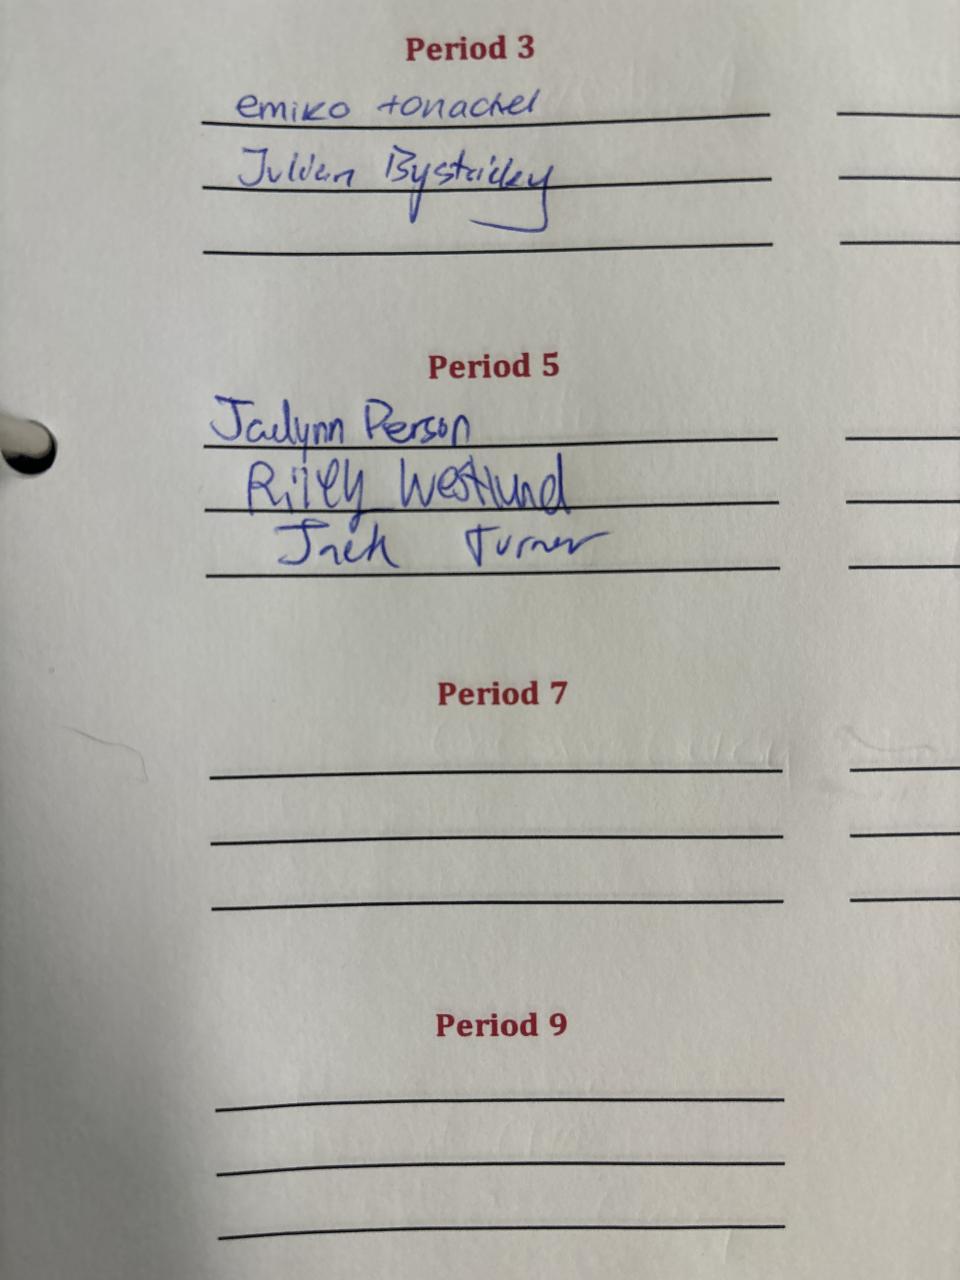 Period 3
emiko tonachel
Julian Bystricky
Period 5
Jaelynn Person
Riley Westlund
Jack Turner
Period 7
Period 9